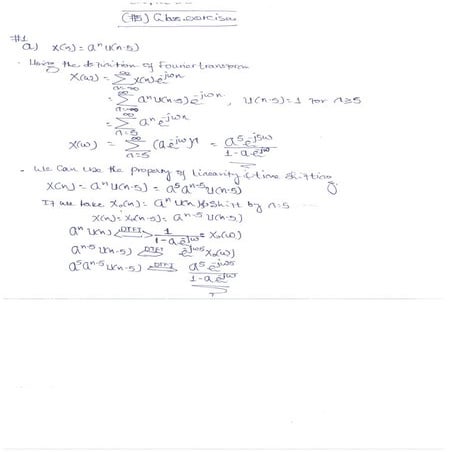 (#5) Class exercises
#1
a) x(n) = a^n u(n-5)
- Using the definition of Fourier transform
X(ω) = Σ_{n=-∞}^{∞} x(n) e^{-jωn}
= Σ_{n=-∞}^{∞} a^n u(n-5) e^{-jωn} , u(n-5) = 1 for n≥5
= Σ_{n=5}^{∞} a^n e^{-jωn}
X(ω) = Σ_{n=5}^{∞} (a e^{-jω})^n = a^5 e^{-j5ω} / 1 - a e^{-jω}
- We can use the property of linearity & time shifting
x(n) = a^n u(n-5) = a^5 a^{n-5} u(n-5)
If we take x₀(n) = a^n u(n) shift by n=5 ...
x(n) = x₀(n-5) = a^{n-5} u(n-5)
a^n u(n) <DTFT> 1 / 1 - a e^{-jω} = X₀(ω)
a^{n-5} u(n-5) <DTFT> e^{-jω5} X₀(ω)
a^5 a^{n-5} u(n-5) <DTFT> a^5 e^{-jω5} / 1 - a e^{-jω}